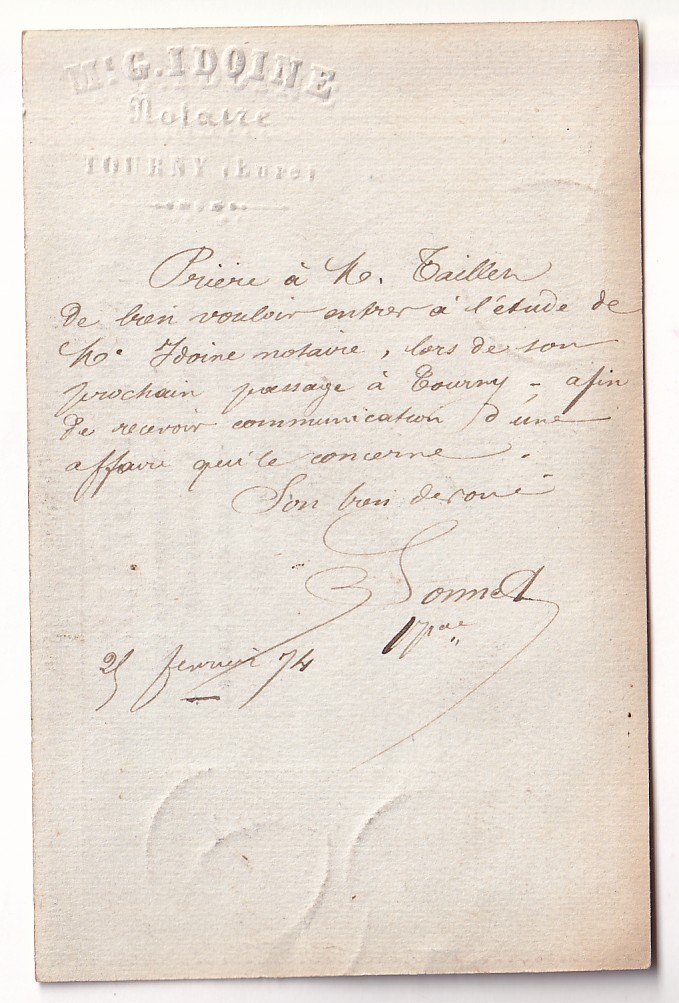 Mᵉ G. IDOINE
Notaire
TOURNY (Eure)
Prière à M. Tailleu
de bien vouloir entrer à l'étude de
Mᵉ Idoine notaire, lors de son
prochain passage à Tourny - afin
de recevoir communication d'une
affaire qui le concerne.
Son bien dévoué
Sonnet
25 février 74